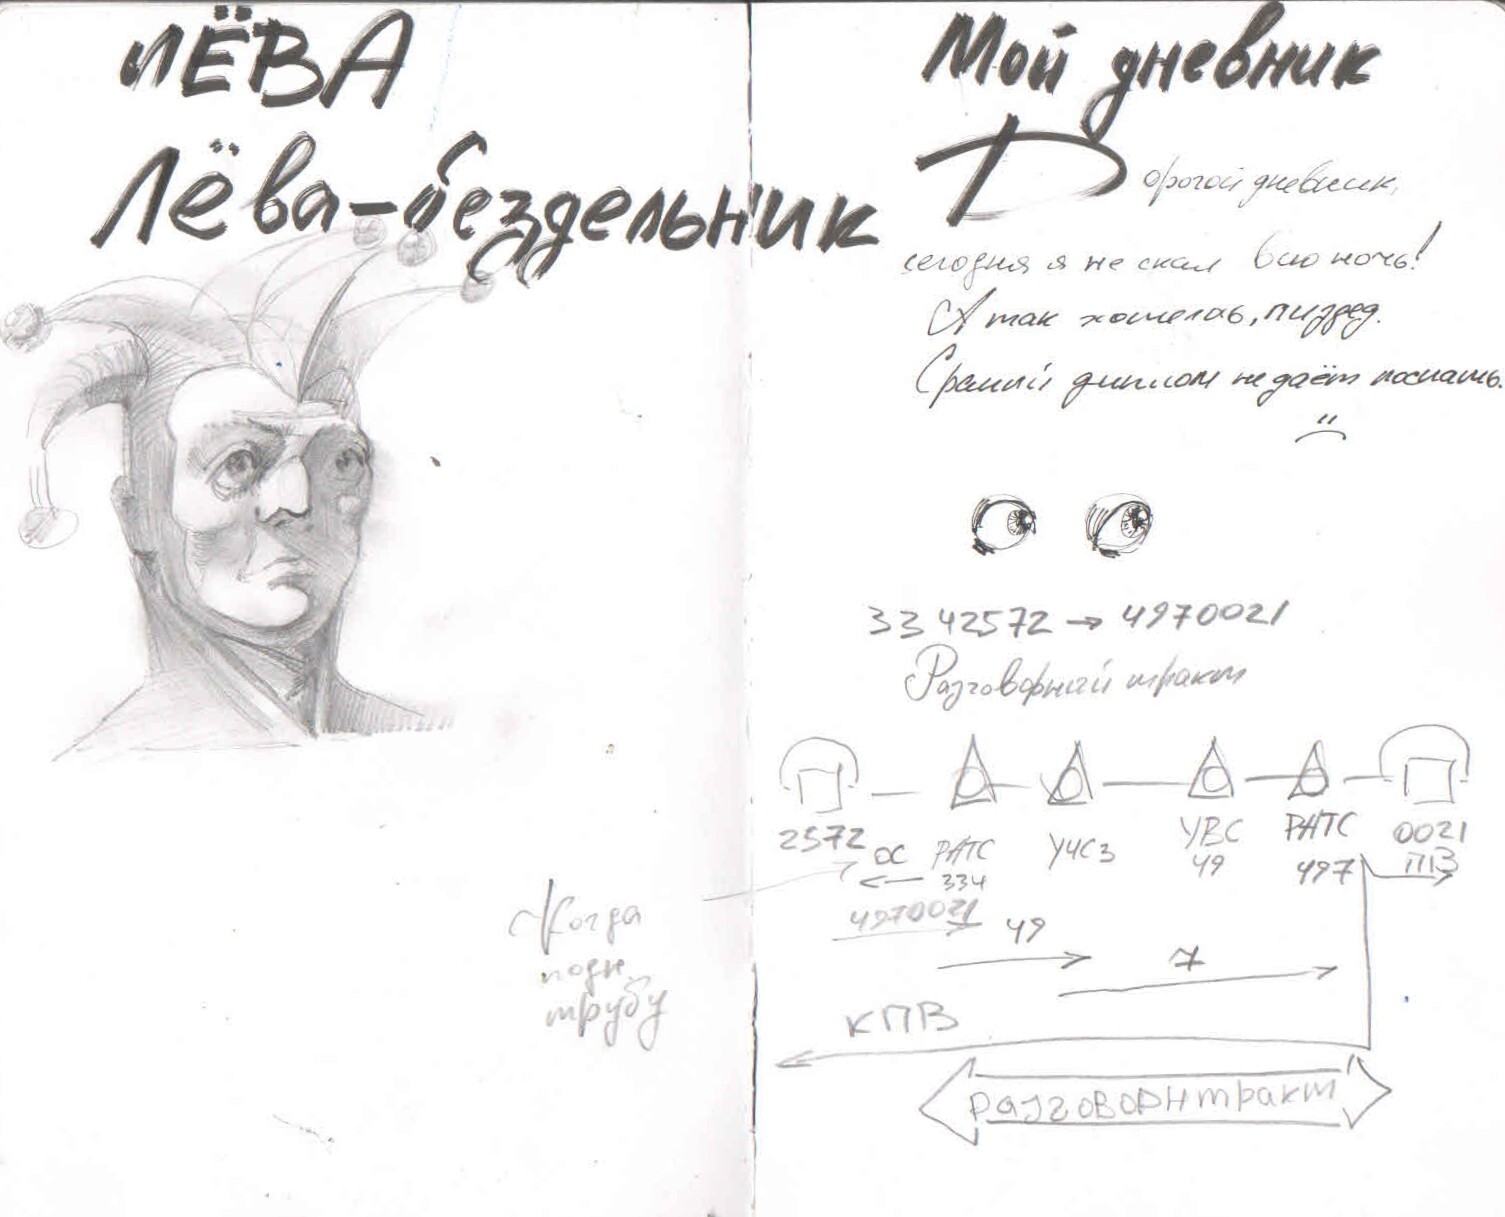 ЛЁВА
Лёва-бездельник
Когда
подн.
трубу
Мой дневник
Дорогой дневник,
сегодня я не спал всю ночь!
А так хотелось, пиздец.
Сраный диплом не даёт поспать.
33 42572 → 4970021
Разговорный тракт
2572 ОС РАТС УЧСЗ УВС РАТС 0021
334 49 497 ПВ
4970021
49
7
КПВ
РАЗГОВОРН тракт